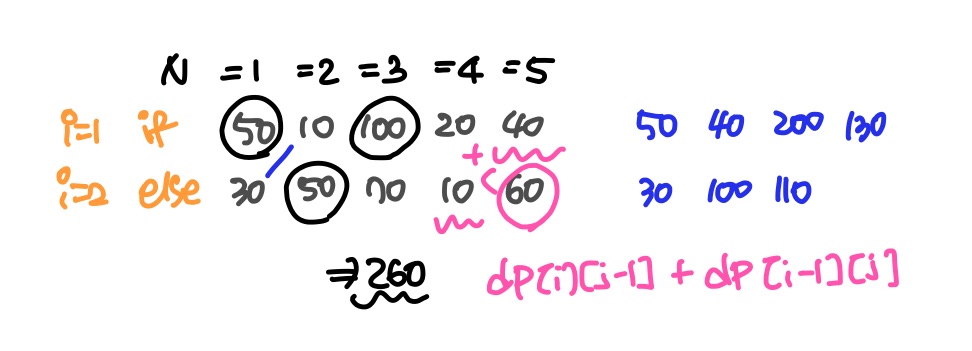 N =1 =2 =3 =4 =5
i=1 if 50 10 100 20 40 50 40 200 130
+
i=2 else 30 50 70 10 < 60 30 100 110
⇒ 260 dp[i][j-1] + dp[i-1][j]